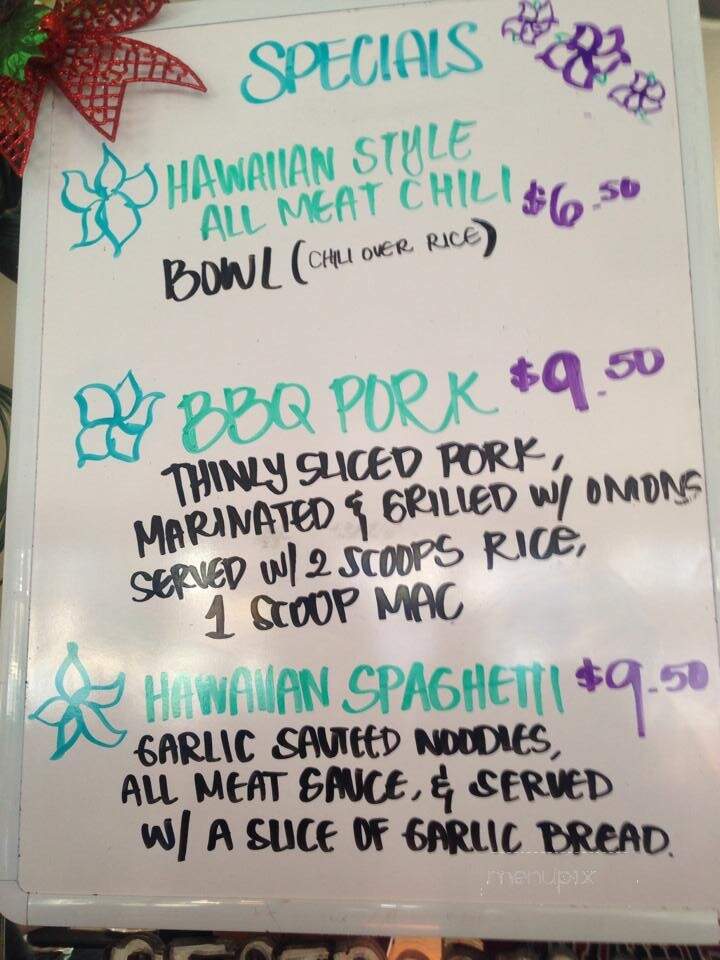 SPECIALS
HAWAIIAN STYLE
ALL MEAT CHILI $6.50
BOWL (CHILI OVER RICE)
BBQ PORK $9.50
THINLY SLICED PORK,
MARINATED & GRILLED W/ ONIONS
SERVED W/ 2 SCOOPS RICE,
1 SCOOP MAC
HAWAIIAN SPAGHETTI $9.50
GARLIC SAUTEED NOODLES,
ALL MEAT SAUCE, & SERVED
W/ A SLICE OF GARLIC BREAD.
menupix